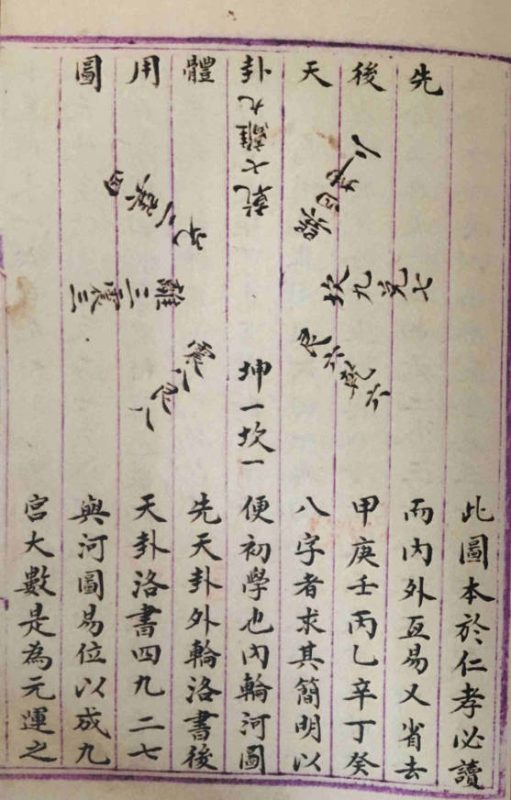 先後天卦體用圖
乾七離九
巽四坤二
坎九兌七
艮六乾六
坤一坎一
震八艮八
離三震三
兌二巽四
此圖本於仁孝必讀
而內外互易又省去
甲庚壬丙乙辛丁癸
八字者求其簡明以
便初學也內輪河圖
先天卦外輪洛書後
天卦洛書四九二七
與河圖易位以成九
宮大數是為元運之